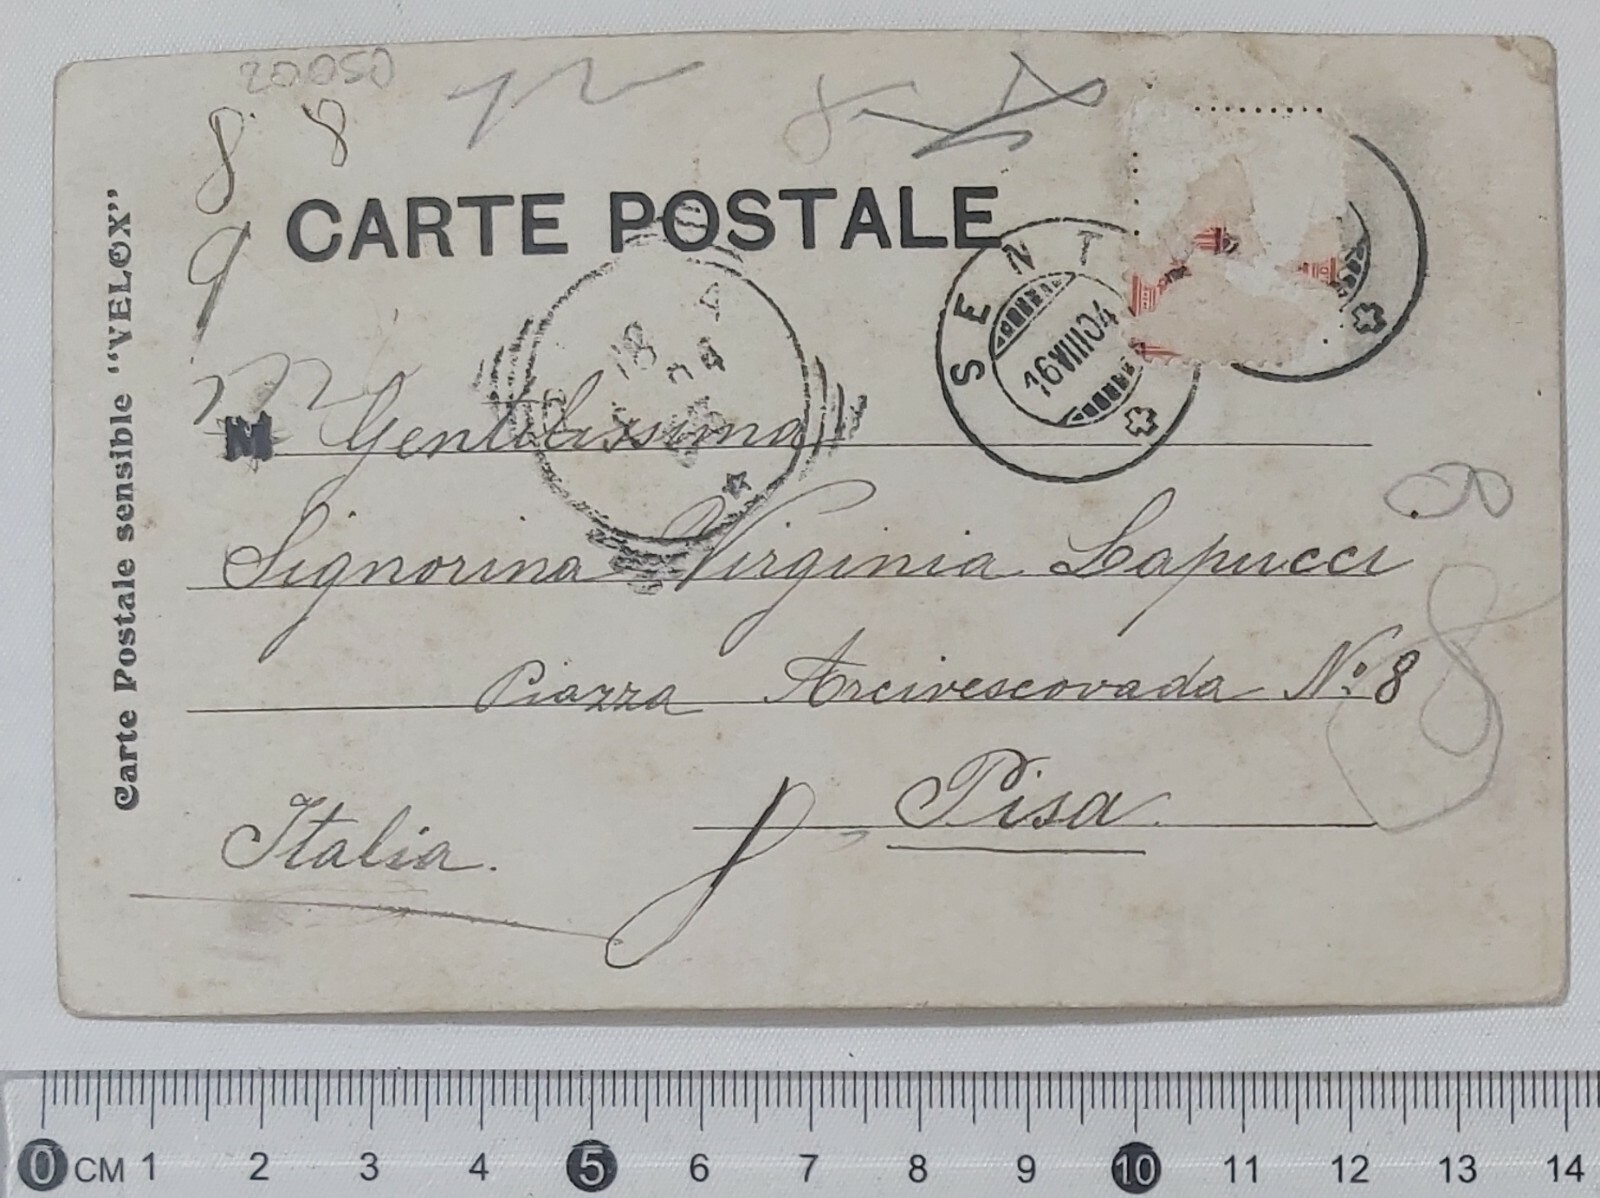 20050
8 8
8
9
CARTE POSTALE
Carte Postale sensible "VELOX"
SENT
16VIII04
18
M Gentilissima
Signorina Virginia Lapucci
Piazza Arcivescovada No. 8
Pisa.
Italia.
8
0 CM 1 2 3 4 5 6 7 8 9 10 11 12 13 14